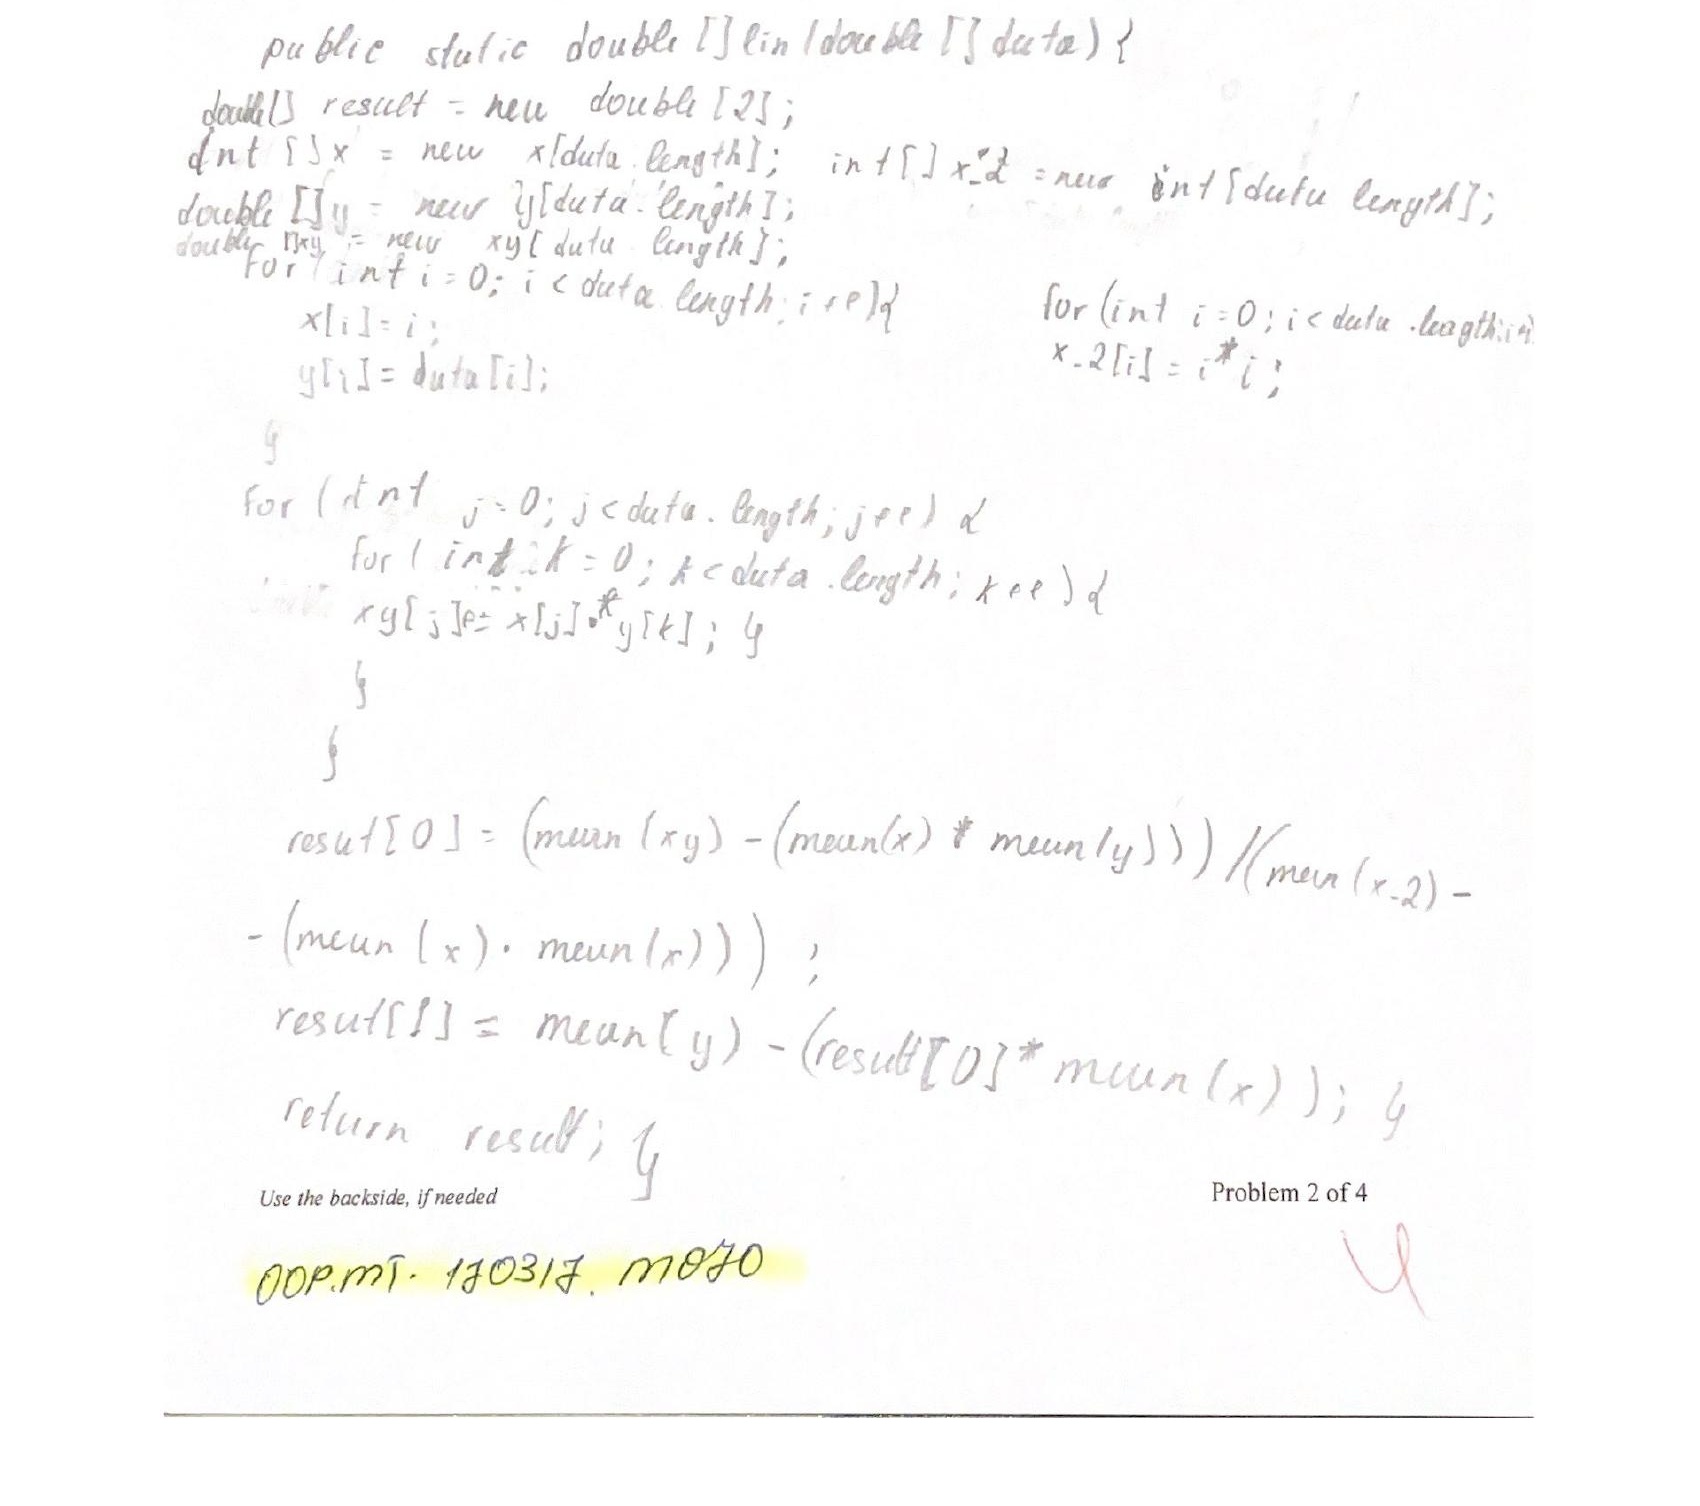 public static double [] lin (double [] data) {
double[] result = new double [2];
int [] x = new x[data.length]; int [] x_2 = new int [data length];
double [] y = new y[data.length];
double []xy = new xy[data length];
for (int i = 0; i < data length; i++){
x[i] = i;
y[i] = data[i];
}
for (int i = 0; i < data .length; i+
x_2[i] = i * i;
for (int j = 0; j < data. length; j++) {
for ( int k = 0; k < data .length; k++) {
xy[j]+= x[j] * y[k]; }
}
}
resut[0] = (mean (xy) - (mean(x) * mean(y))) / (mean (x_2) -
- (mean (x) . mean(x)));
resut[1] = mean[y) - (result[0] * mean (x)); }
return result; }
Use the backside, if needed
Problem 2 of 4
OOP.MT. 170317. M070
4